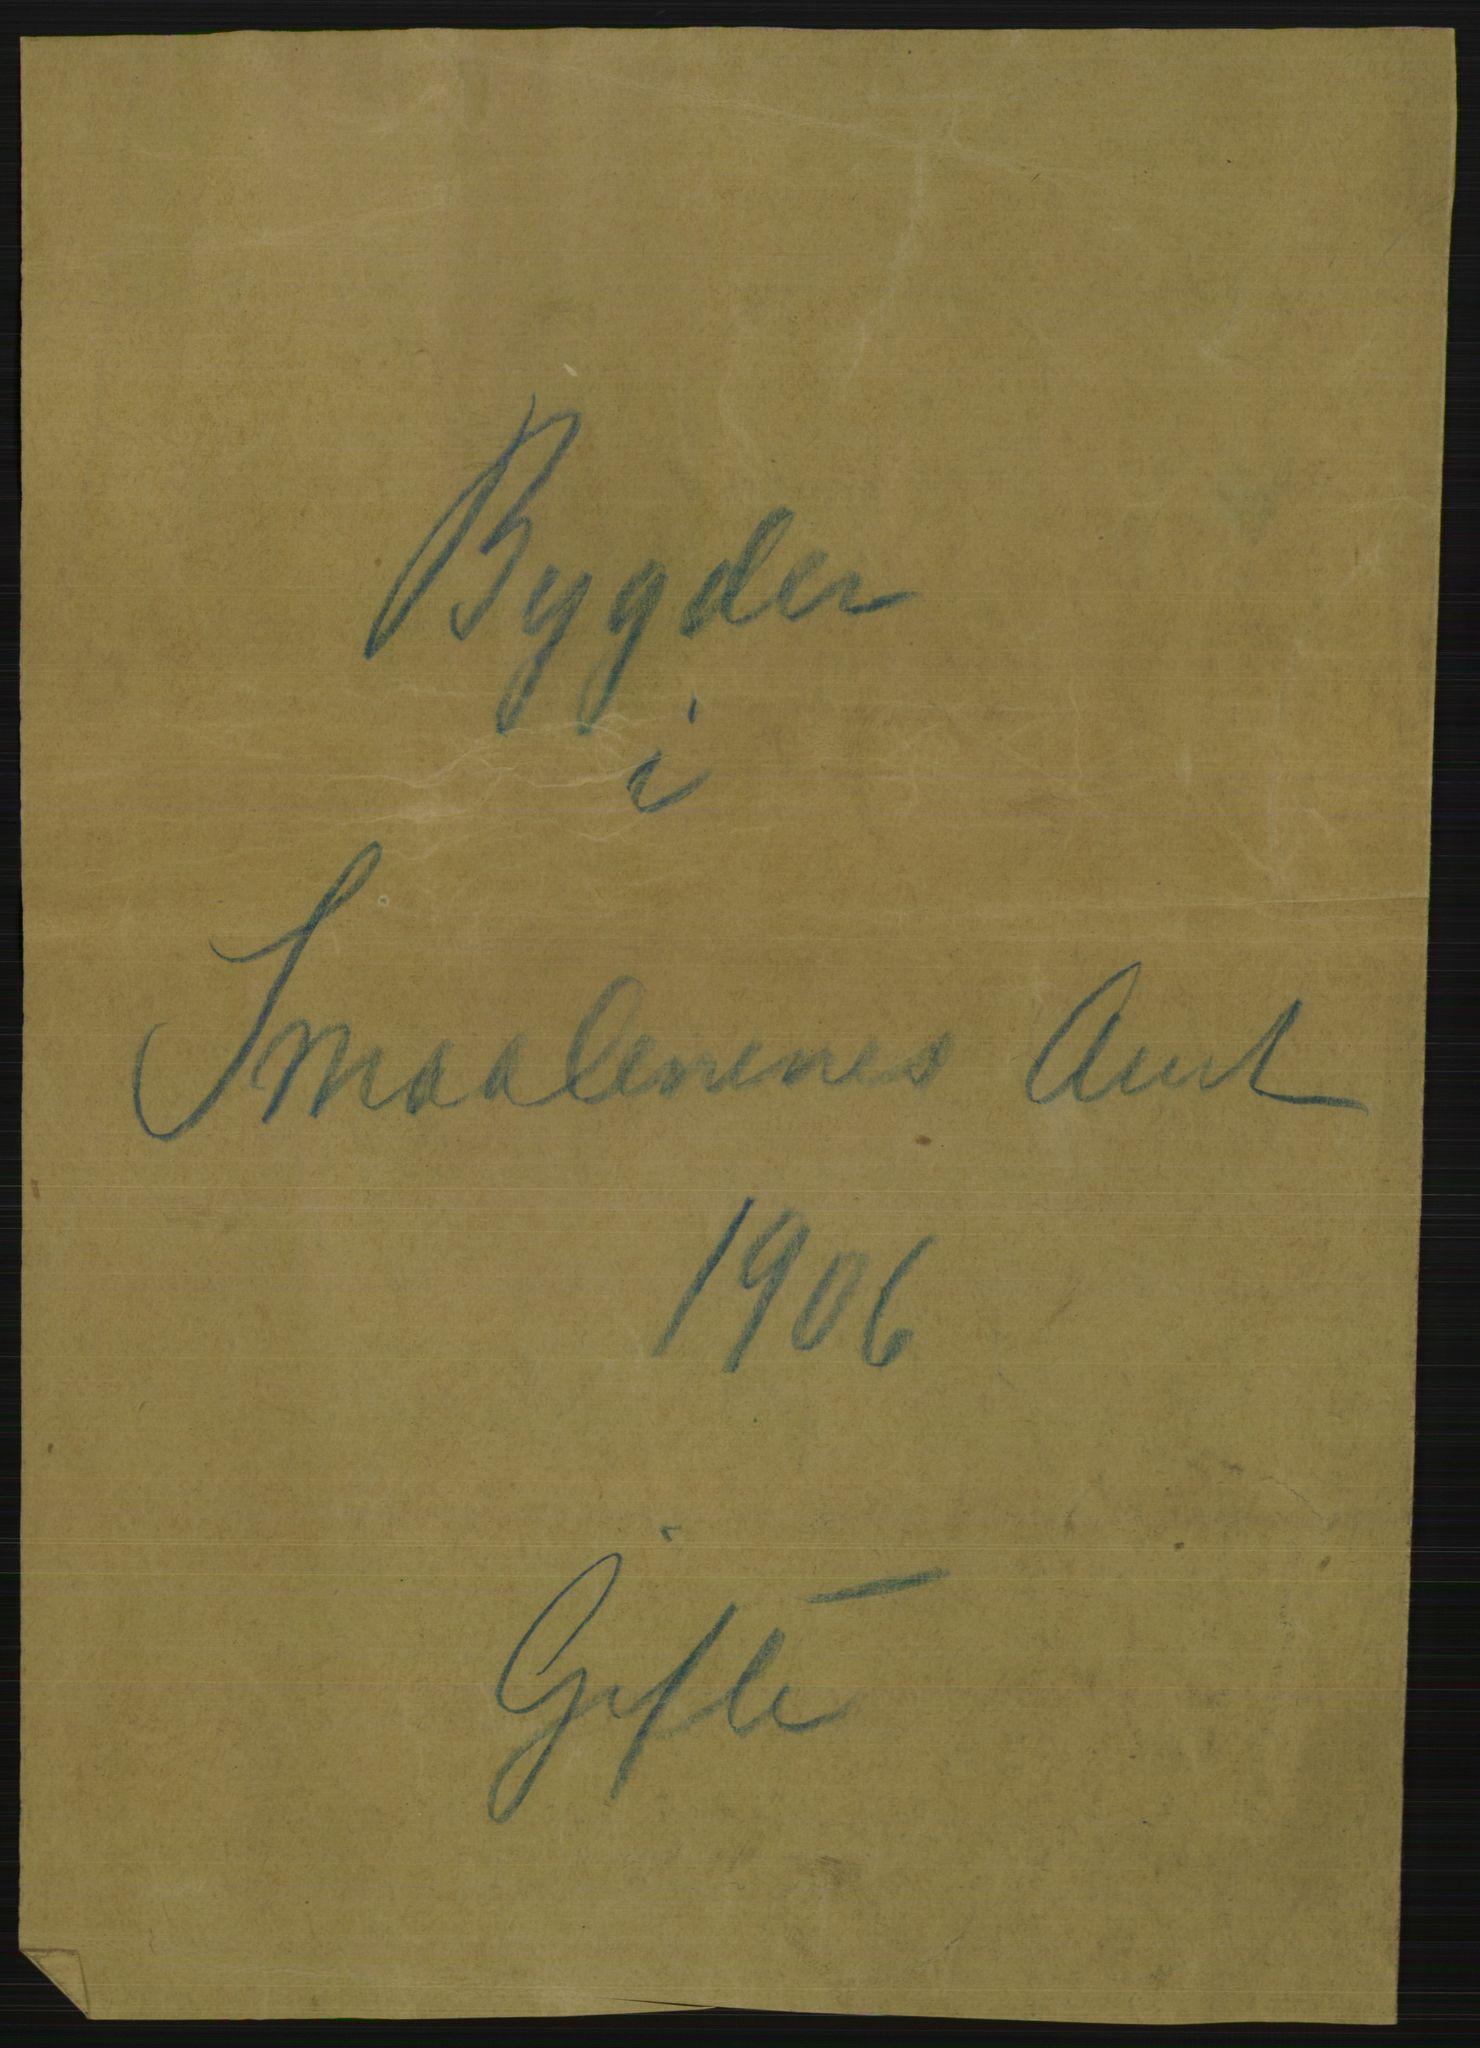 Bygder
i
Smaalenenes Amt
1906
Gifte